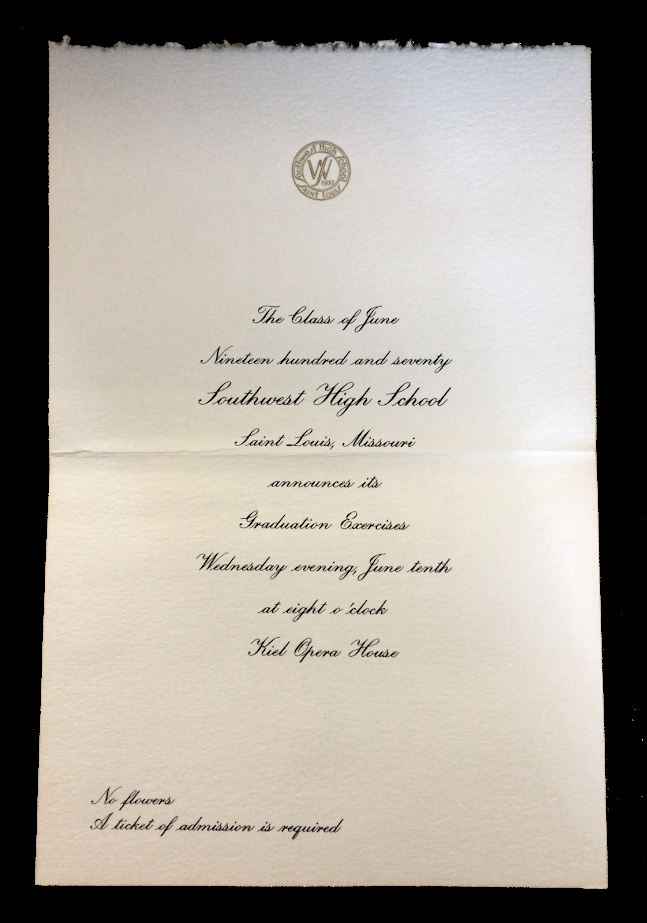 Southwest High School
W
Saint Louis
The Class of June
Nineteen hundred and seventy
Southwest High School
Saint Louis, Missouri
announces its
Graduation Exercises
Wednesday evening, June tenth
at eight o'clock
Kiel Opera House
No flowers
A ticket of admission is required